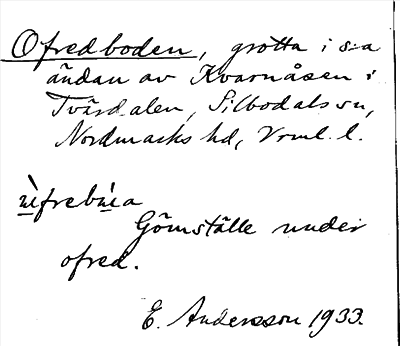 Ofredboden, grotta i s:a
ändan av Kvarnåsen i
Tvärdalen, Silbodals sn,
Nordmarks hd, Vrml. l.
Gömställe under
ofred.
E. Andersson 1933.